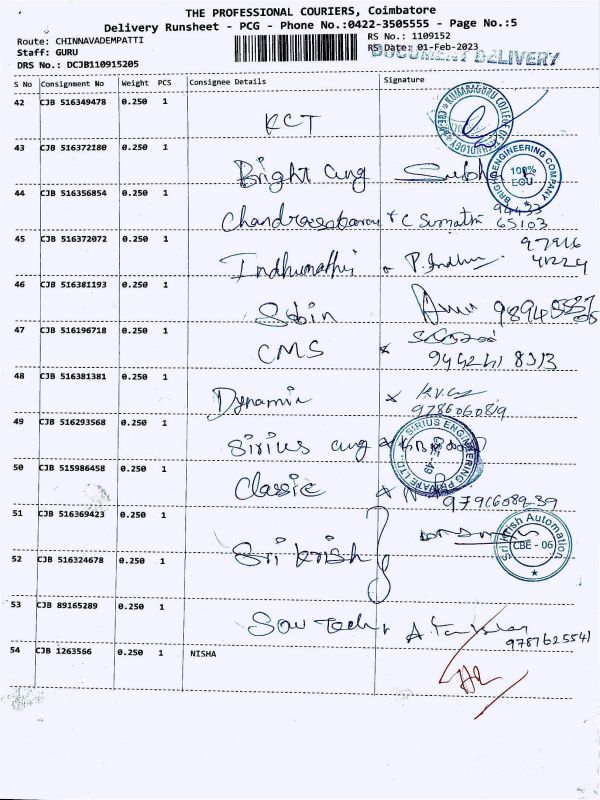 THE PROFESSIONAL COURIERS, Coimbatore
Delivery Runsheet - PCG - Phone No.:0422-3505555 - Page No.:5
Route: CHINNAVADEMPATTI
Staff: GURU
DRS No.: DCJB110915205
RS No.: 1109152
RS Date: 01-Feb-2023
DOCUMENT DELIVERY
S No Consignment No Weight PCS Consignee Details Signature
42 CJB 516349478 0.250 1
KCT
KUMARAGURU COLLEGE OF TECHNOLOGY
43 CJB 516372180 0.250 1
Bright eng
BRIGHT ENGINEERING COMPANY
100%
EOU
44 CJB 516356854 0.250 1
C Sumathi 94433
65103
45 CJB 516372072 0.250 1
Indhumathi P. Indhu
97916
41224
46 CJB 516381193 0.250 1
Sobin
47 CJB 516196718 0.250 1
CMS
48 CJB 516381381 0.250 1
Dynamic
9786060819
49 CJB 516293568 0.250 1
Sirius eng
SIRIUS ENGINEERING PRIVATE LTD
CBE-49
50 CJB 515986458 0.250 1
Classic
51 CJB 516369423 0.250 1
Sri krish
Sri Krish Automation
CBE - 06
52 CJB 516324678 0.250 1
53 CJB 89165289 0.250 1
9787625541
54 CJB 1263566 0.250 1 NISHA